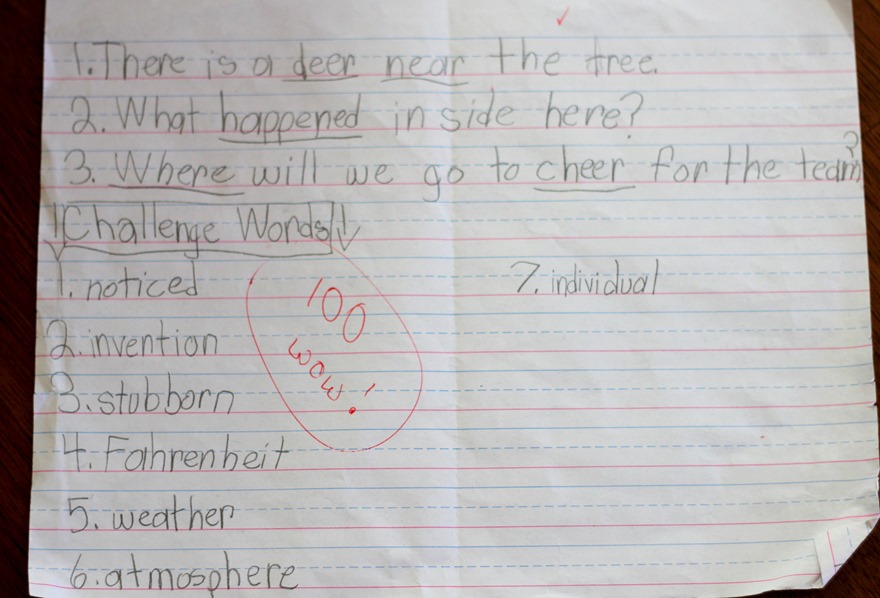 1. There is a deer near the tree.
2. What happened in side here?
3. Where will we go to cheer for the team?
Challenge Words
1. noticed
2. invention
3. stubborn
4. Fahrenheit
5. weather
6. atmosphere
7. individual
100
wow!